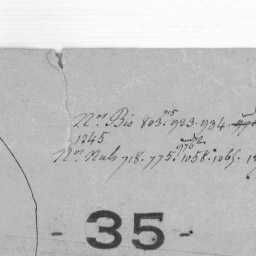 Nos Bis 803. 915 923. 934
1245
Nos Nuls 718. 775. 976 1058. 1065.
- 35 -